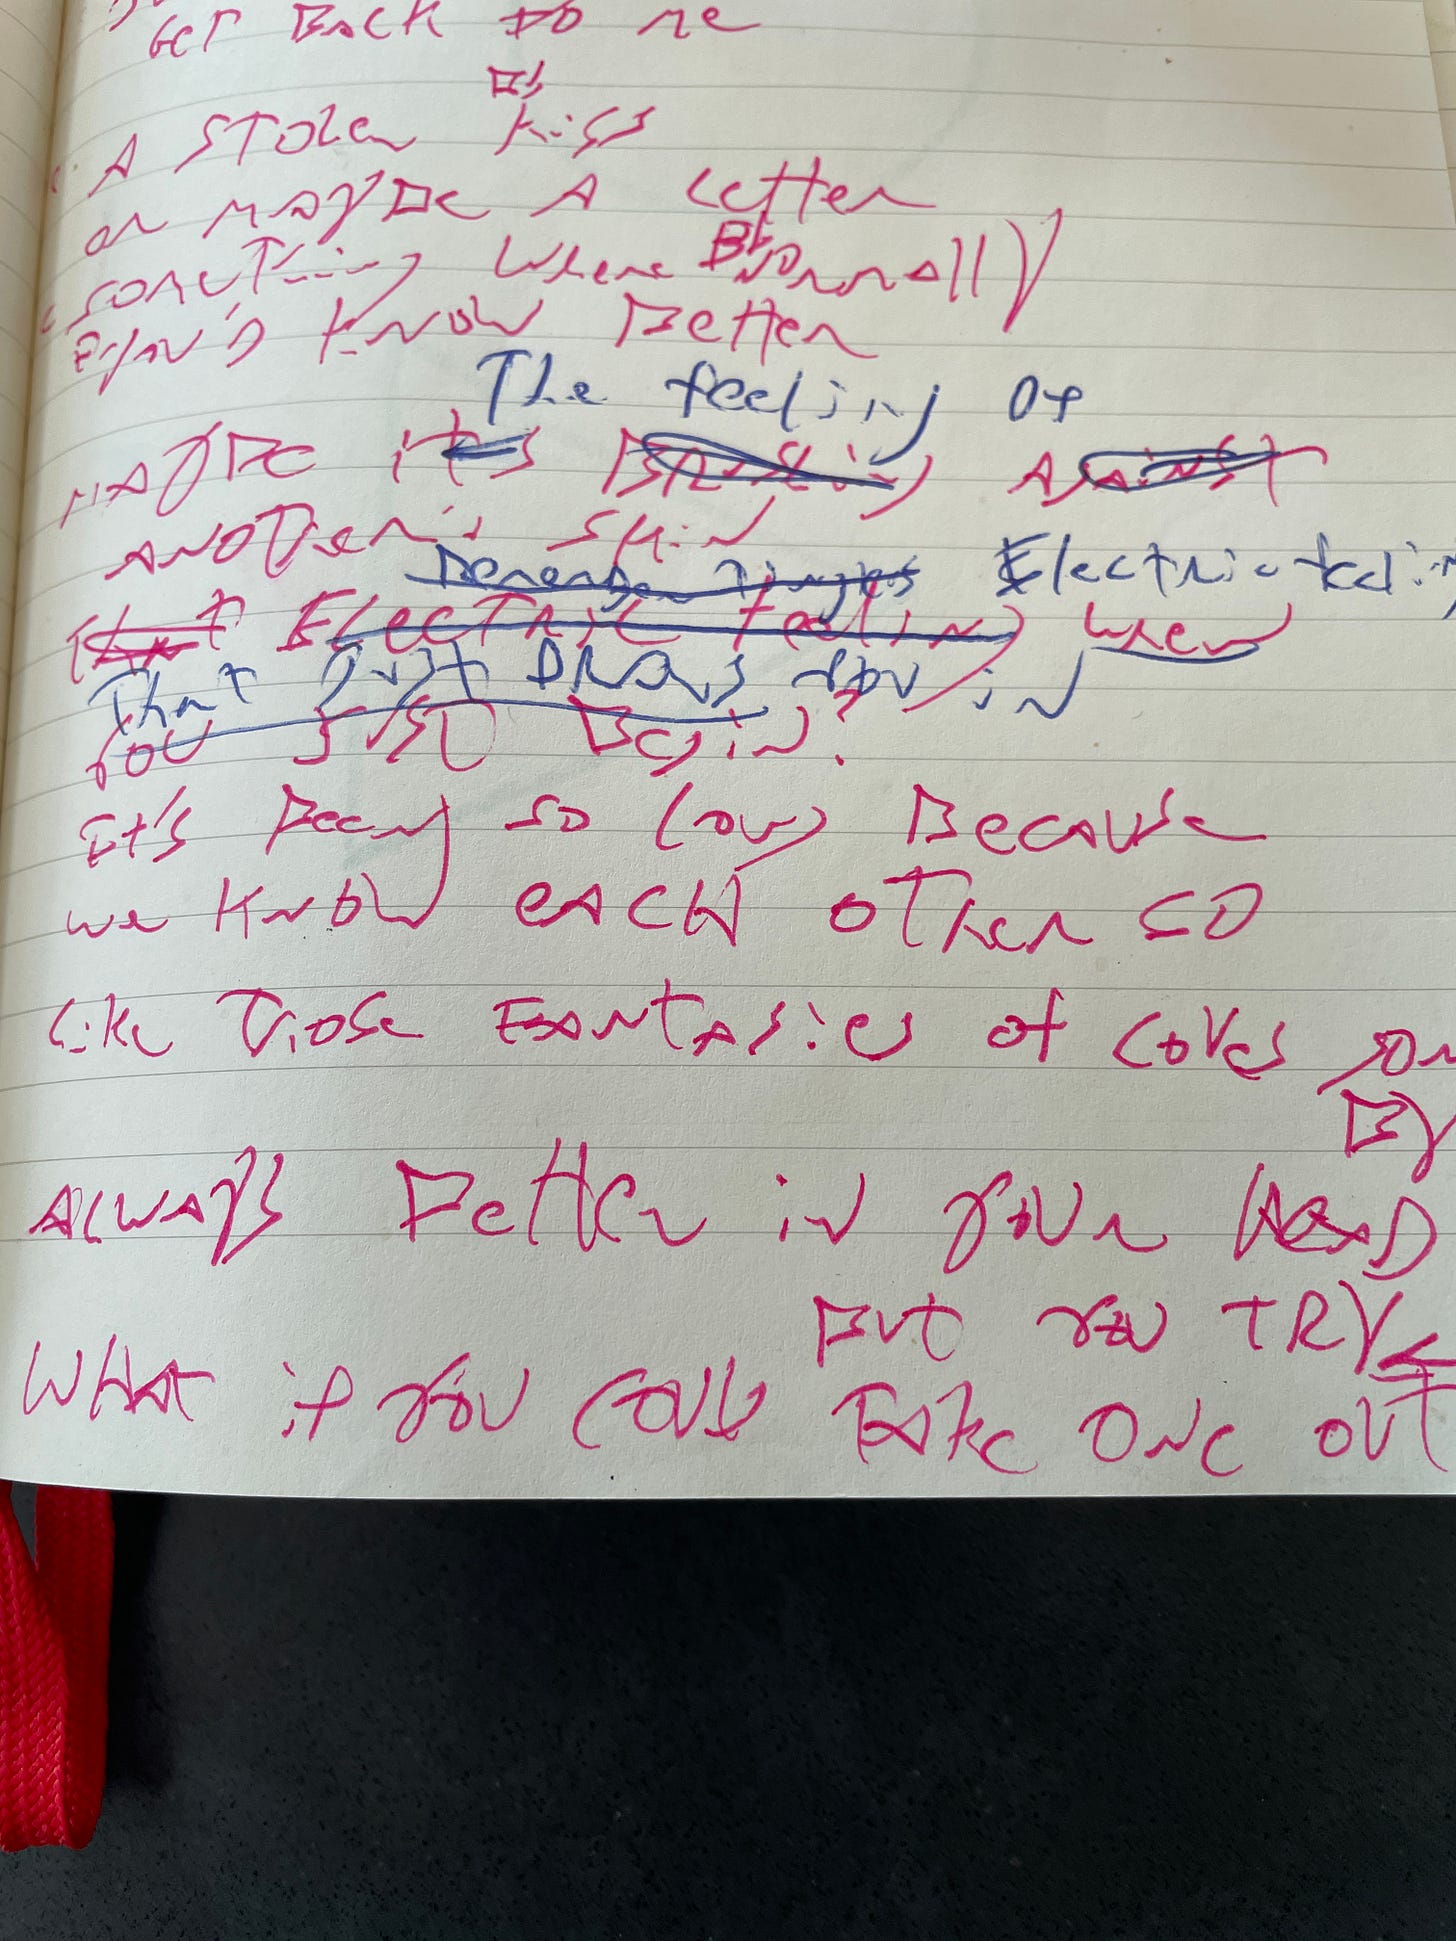 Get Back to me
A Stolen Kiss
or maybe A Letter
something where normally
know Better
The feeling of
maybe it's Brushing Against
Another's skin
Electric feelin
That Electric feeling when
That just Draws you in
you just Begin?
It's Been so Long Because
we know eacH other so
Like Those Fantasies of Loves
By
Always Better in your HeaD
But you TRY
WHAt if you could Take One out